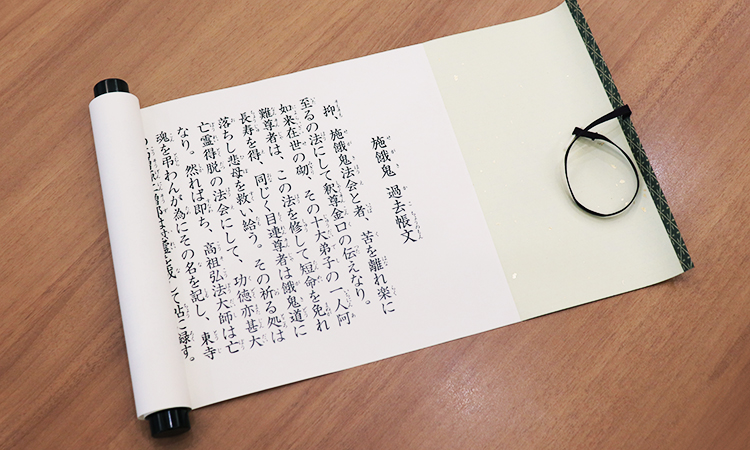 施餓鬼 過去帳文
抑、施餓鬼法会と者、苦を離れ楽に
至るの法にして釈尊金口の伝えなり。
如来在世の砌、その十大弟子の一人阿
難尊者は、この法を修して短命を免れ
長寿を得、同じく目連尊者は餓鬼道に
落ちし悲母を救い給う。その祈る処は
亡霊得脱の法会にして、功徳亦甚大
なり。然れば即ち、高祖弘法大師は亡
魂を弔わんが為にその名を記し、東寺
て帖に録す。